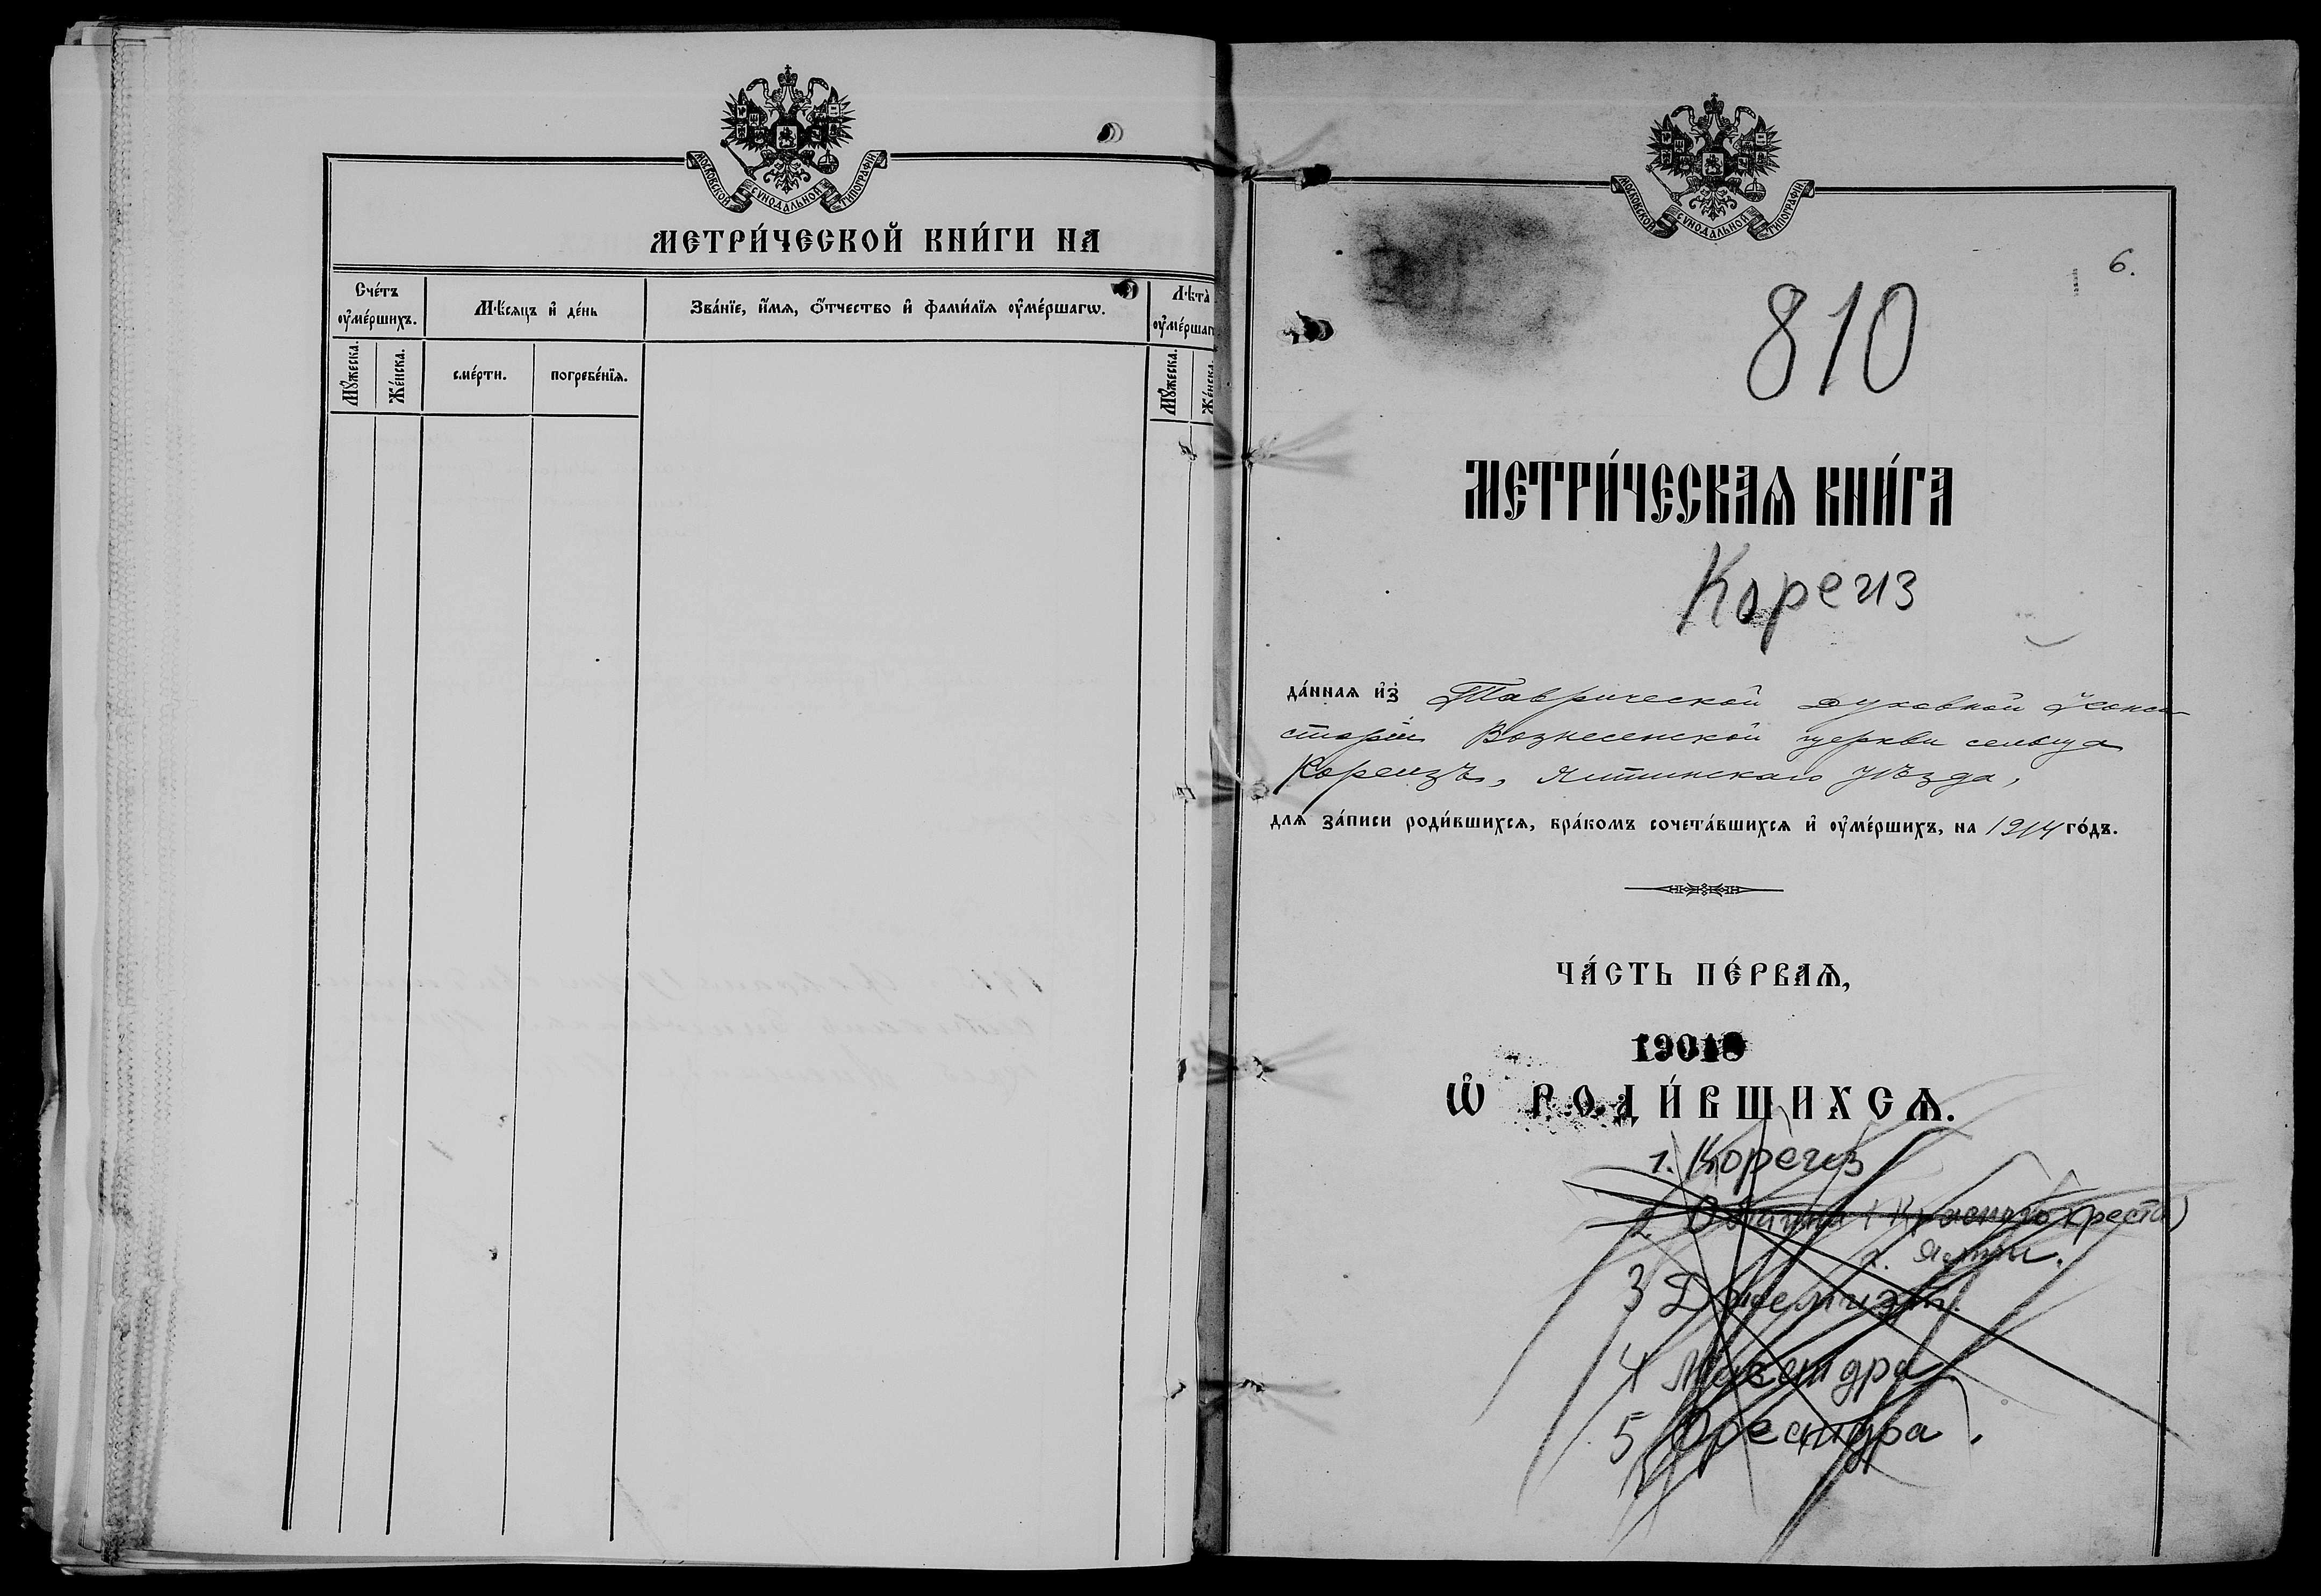 МОСКОВСКОЙ СѴНОДАЛЬНОЙ ТИПОГРАФІИ.
МЕТРИ́ЧЕСКОЙ КНИ́ГИ НА
Сче́тъ ᲂу҆ме́ршихъ.
Мѣ́сяцъ и҆ де́нь
Зва́нїе, и҆́мя, ѻ҆́тчество и҆ фами́лїя ᲂу҆ме́ршагѡ.
Лѣта̀ ᲂу҆ме́ршаг
Мꙋ́жеска.
Же́нска.
сме́рти.
погребе́нїя.
Мꙋ́жеска.
Же́нска.
МОСКОВСКОЙ СѴНОДАЛЬНОЙ ТИПОГРАФІИ.
6.
810
МЕТРИ́ЧЕСКАѦ КНИ́ГА
Кореиз
да́нная и҆з̾ Таврической Духовной Конси
сторіи Вознесенской церкви сельца
Кореизъ, Ялтинскаго уѣзда,
для за́писи роди́вшихся, бра́комъ сочета́вшихся и҆ ᲂу҆ме́ршихъ, на 1914 го́дъ.
ЧА́СТЬ ПЕ́РВАѦ,
Ѡ҆ РОДИ́ВШИХСѦ.
1. Кореиз
2. Общины (Красного креста)
г. Ялты.
3 Джемиэт.
4 Массандра
5 Ореанда.